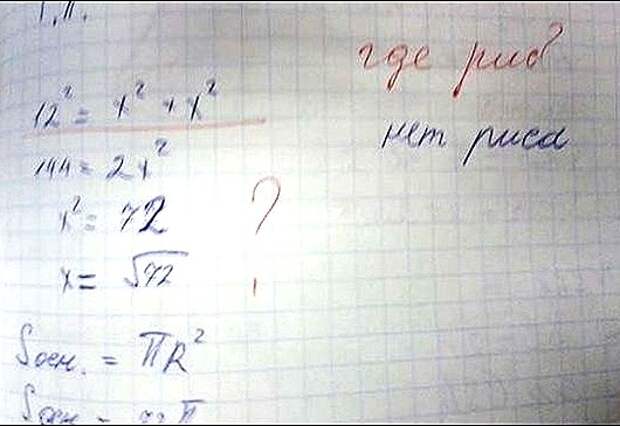 12² = x² + x²
144 = 2x²
x² = 72
x = √72
?
Sосн. = πR²
Sосн = 72π
где рис?
нет риса